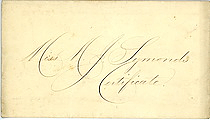 Miss M. A. Symonds
Certificate.